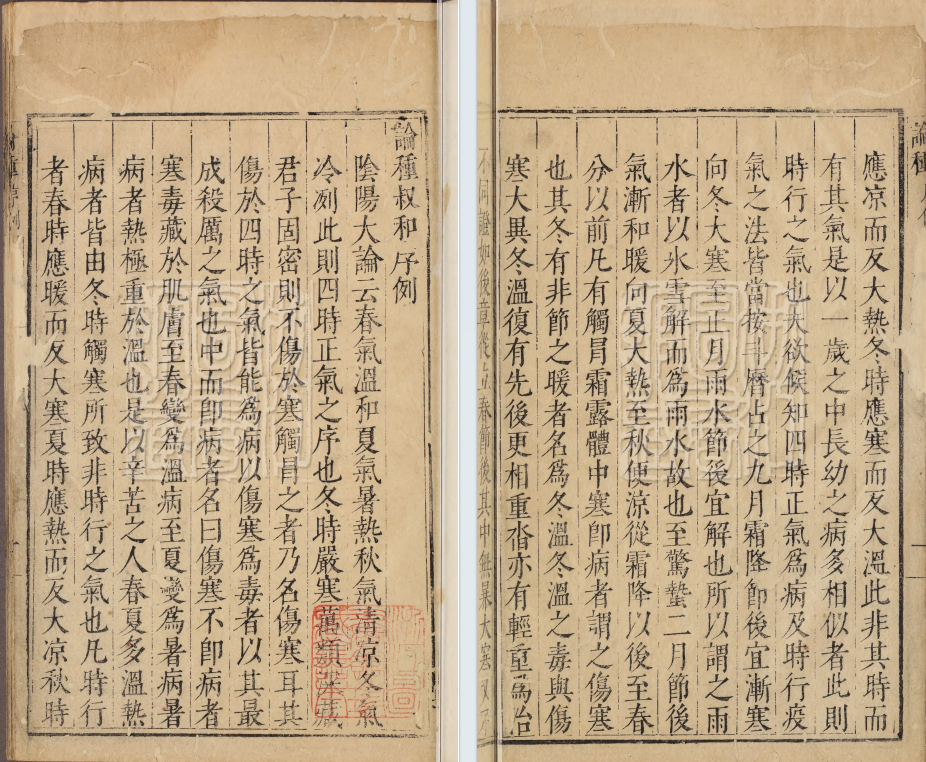 論種叔和序例
陰陽大論云春氣溫和夏氣暑熱秋氣清凉冬氣
冷冽此則四時正氣之序也冬時嚴寒萬類深藏
君子固密則不傷於寒觸冒之者乃名傷寒耳其
傷於四時之氣皆能爲病以傷寒爲毒者以其最
成殺厲之氣也中而卽病者名曰傷寒不卽病者
寒毒藏於肌膚至春變爲溫病至夏變爲暑病暑
病者熱極重於溫也是以辛苦之人春夏多溫熱
病者皆由冬時觸寒所致非時行之氣也凡時行
者春時應暖而反大寒夏時應熱而反大凉秋時
應凉而反大熱冬時應寒而反大溫此非其時而
有其氣是以一歲之中長幼之病多相似者此則
時行之氣也夫欲候知四時正氣爲病及時行疫
氣之法皆當按斗曆占之九月霜降節後宜漸寒
向冬大寒至正月雨水節後宜解也所以謂之雨
水者以氷雪解而爲雨水故也至驚蟄二月節後
氣漸和暖向夏大熱至秋便涼從霜降以後至春
分以前凡有觸冒霜露體中寒卽病者謂之傷寒
也其冬有非節之暖者名爲冬溫冬溫之毒與傷
寒大異冬溫復有先後更相重沓亦有輕重爲治
不同證如後章從立春節後其中無暴大寒又不